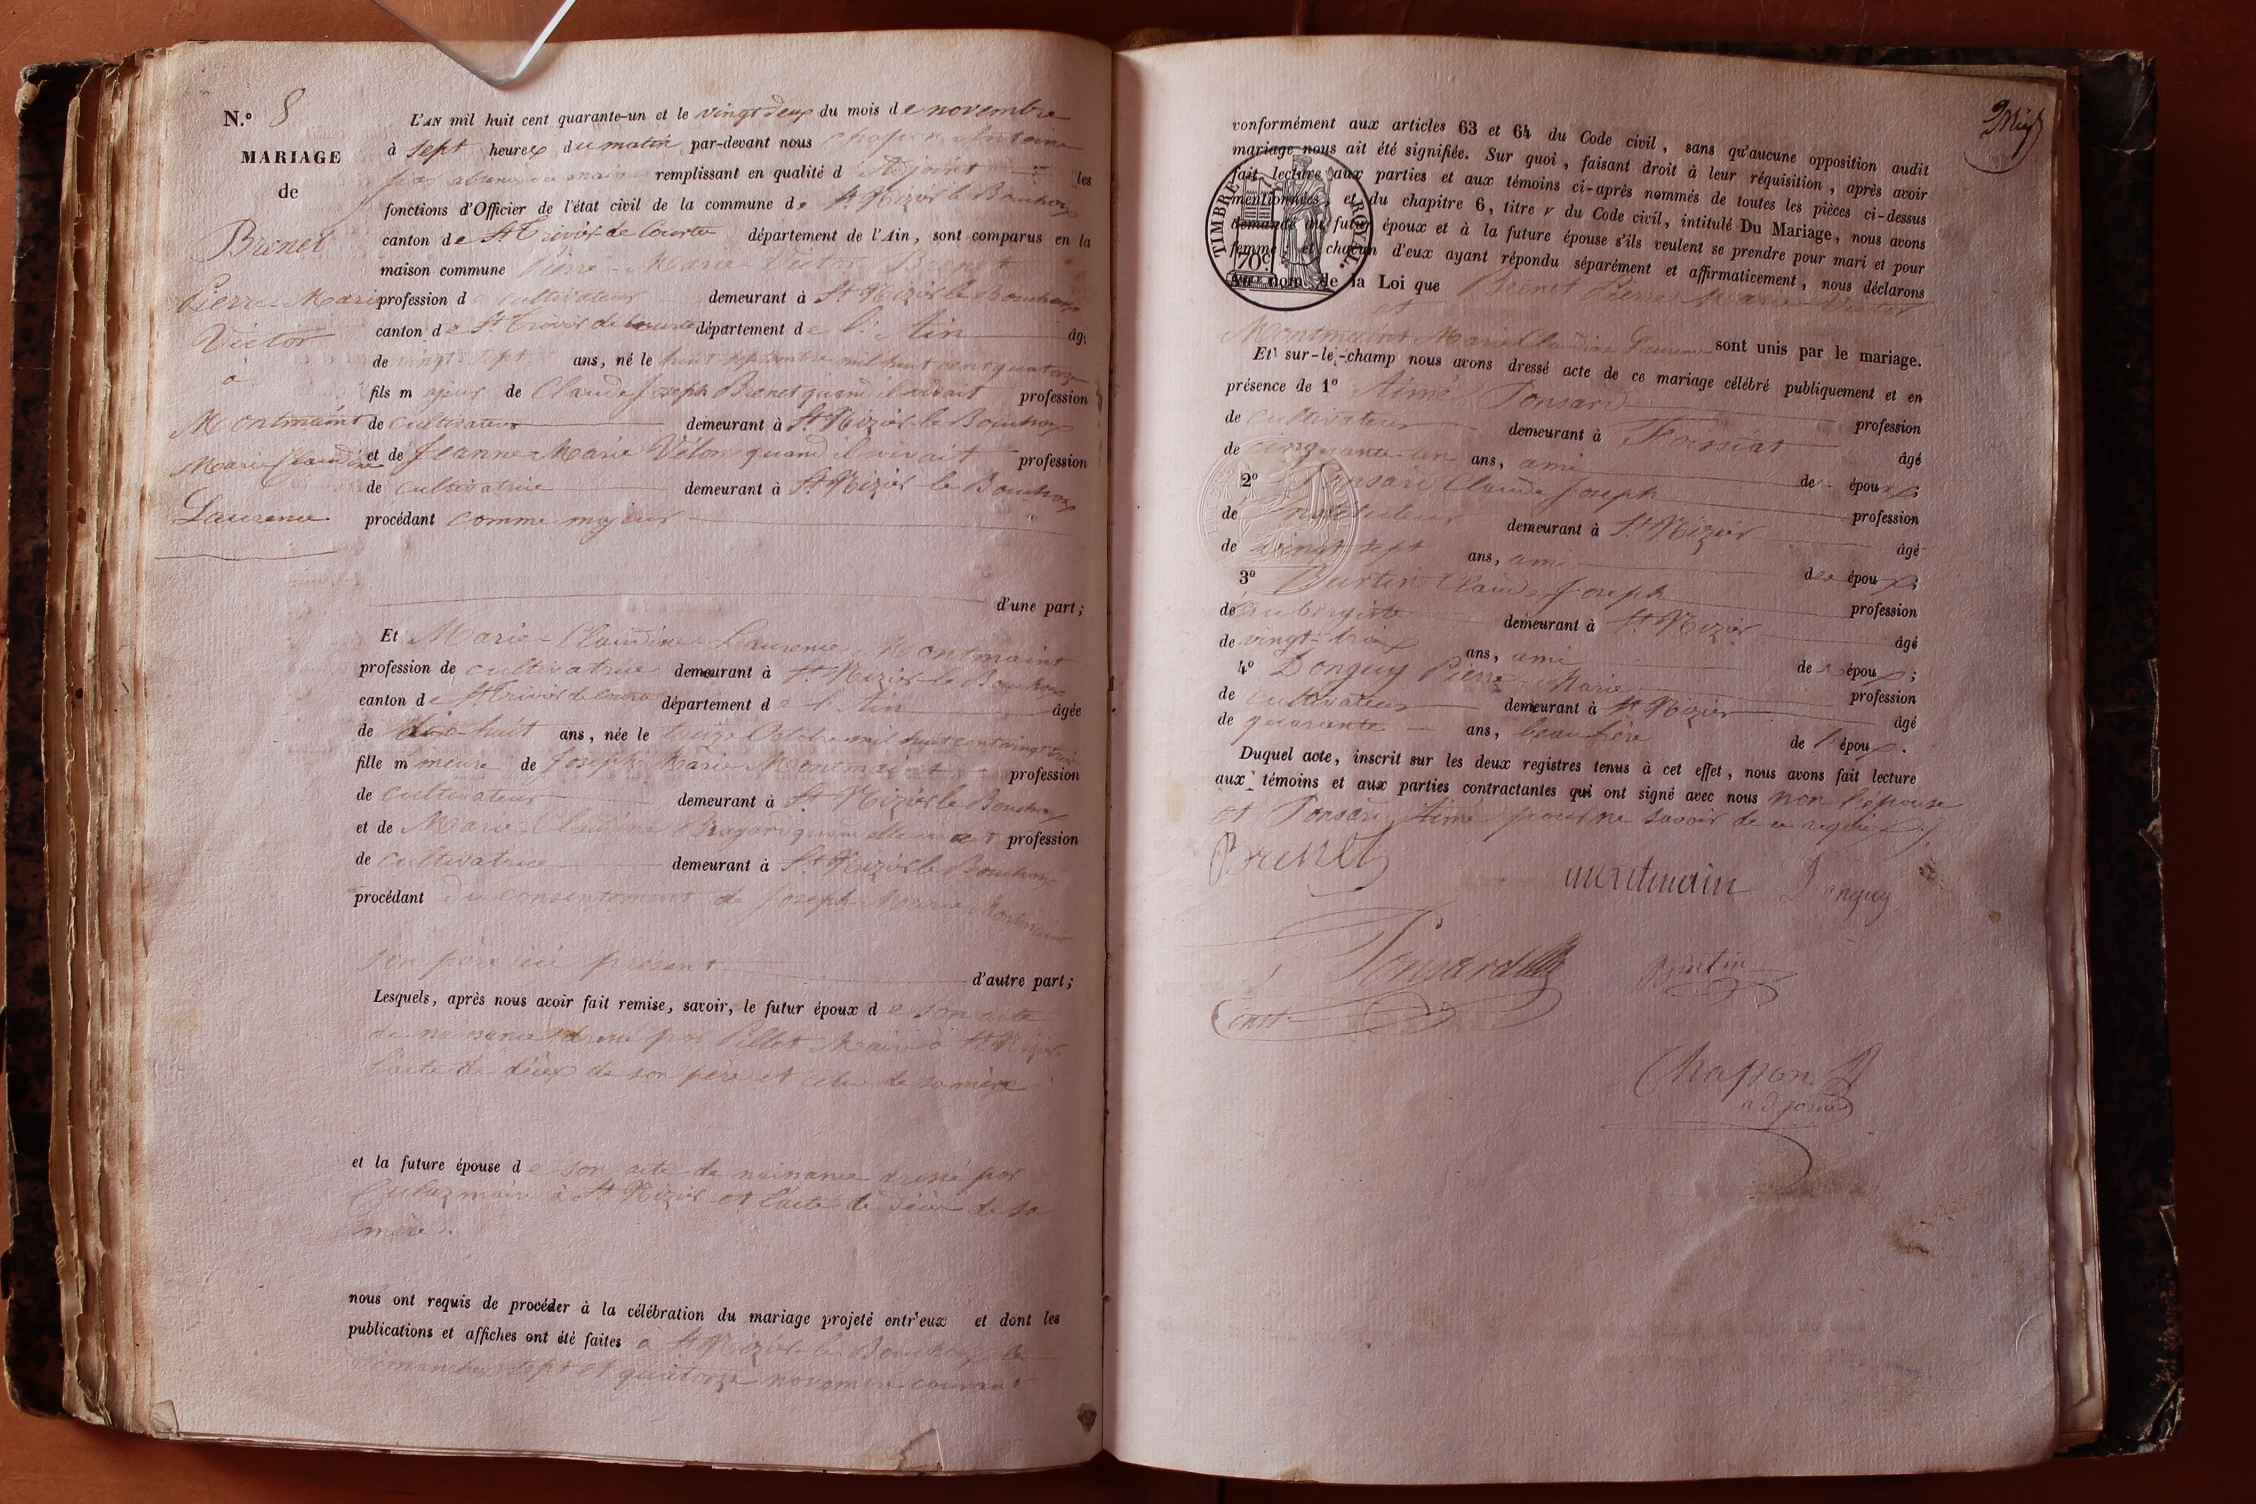 N.º 8
MARIAGE
de
Brenet
Pierre-Marie
Victor
à
Montmaint
Marie Claudine
Laurence
L'AN mil huit cent quarante-un et le vingt deux du mois de novembre
à sept heures du matin par-devant nous Chapon Antoine
par absence du maire remplissant en qualité d'Adjoint les
fonctions d'Officier de l'état civil de la commune de St Nizier le Bouchoux
canton de St Trivier de Courtes département de l'Ain, sont comparus en la
maison commune Pierre-Marie Victor Brenet
profession de cultivateur demeurant à St Nizier le Bouchoux
canton de St Trivier de Courtes département de l'Ain âgé
de vingt sept ans, né le huit septembre mil huit cent quatorze
fils majeur de Claude Joseph Brenet quand il vivait profession
de cultivateur demeurant à St Nizier le Bouchoux
et de Jeanne Marie Vélon quand il vivait profession
de cultivatrice demeurant à St Nizier le Bouchoux
procédant comme majeur
d'une part;
Et Marie-Claudine Laurence Montmaint
profession de cultivatrice demeurant à St Nizier le Bouchoux
canton de St Trivier de Courtes département de l'Ain âgée
de dix huit ans, née le Octobre mil huit cent vingt trois
fille mineure de Joseph Marie Montmaint profession
de cultivateur demeurant à St Nizier le Bouchoux
et de Marie-Claudine quand elle vivait profession
de cultivatrice demeurant à St Nizier le Bouchoux
procédant du consentement de Joseph Marie Montmaint
son père ici présent
d'autre part;
Lesquels, après nous avoir fait remise, savoir, le futur époux de son acte
de naissance dressé par Pillot Maire à St Nizier
l'acte de décès de son père et celui de sa mère
et la future épouse de son acte de naissance dressé par
maire à St Nizier et l'acte de décès de sa
mère.
nous ont requis de procéder à la célébration du mariage projeté entr'eux et dont les
publications et affiches ont été faites à St Nizier le Bouchoux les
dimanches sept et quatorze novembre courant
conformément aux articles 63 et 64 du Code civil, sans qu'aucune opposition audit
mariage nous ait été signifiée. Sur quoi, faisant droit à leur réquisition, après avoir
fait lecture aux parties et aux témoins ci-après nommés de toutes les pièces ci-dessus
mentionnées, et du chapitre 6, titre v du Code civil, intitulé Du Mariage, nous avons
demandé au futur époux et à la future épouse s'ils veulent se prendre pour mari et pour
femme; et chacun d'eux ayant répondu séparément et affirmativement, nous déclarons
Au nom de la Loi que Brenet Pierre Marie Victor
et
Montmaint Marie Claudine Laurence sont unis par le mariage.
TIMBRE ROYAL
70c
Et sur-le-champ nous avons dressé acte de ce mariage célébré publiquement et en
présence de 1º Aimé Ponsard profession
de cultivateur demeurant à Foissiat âgé
de cinquante un ans, ami des époux;
2º Ponsard Claude Joseph profession
de Instituteur demeurant à St Nizier âgé
de vingt sept ans, ami des époux;
3º Burtin Claude Joseph profession
de aubergiste demeurant à St Nizier âgé
de vingt-trois ans, ami des époux;
4º Donguy Pierre-Marie profession
de cultivateur demeurant à St Nizier âgé
de quarante ans, beau frère de l'époux.
Duquel acte, inscrit sur les deux registres tenus à cet effet, nous avons fait lecture
aux témoins et aux parties contractantes qui ont signé avec nous non l'épouse
et Ponsard Aimé pour ne savoir de ce requis
Brenet
montmain Donguy
Ponsard
Burtin
Chapon A
adjoint